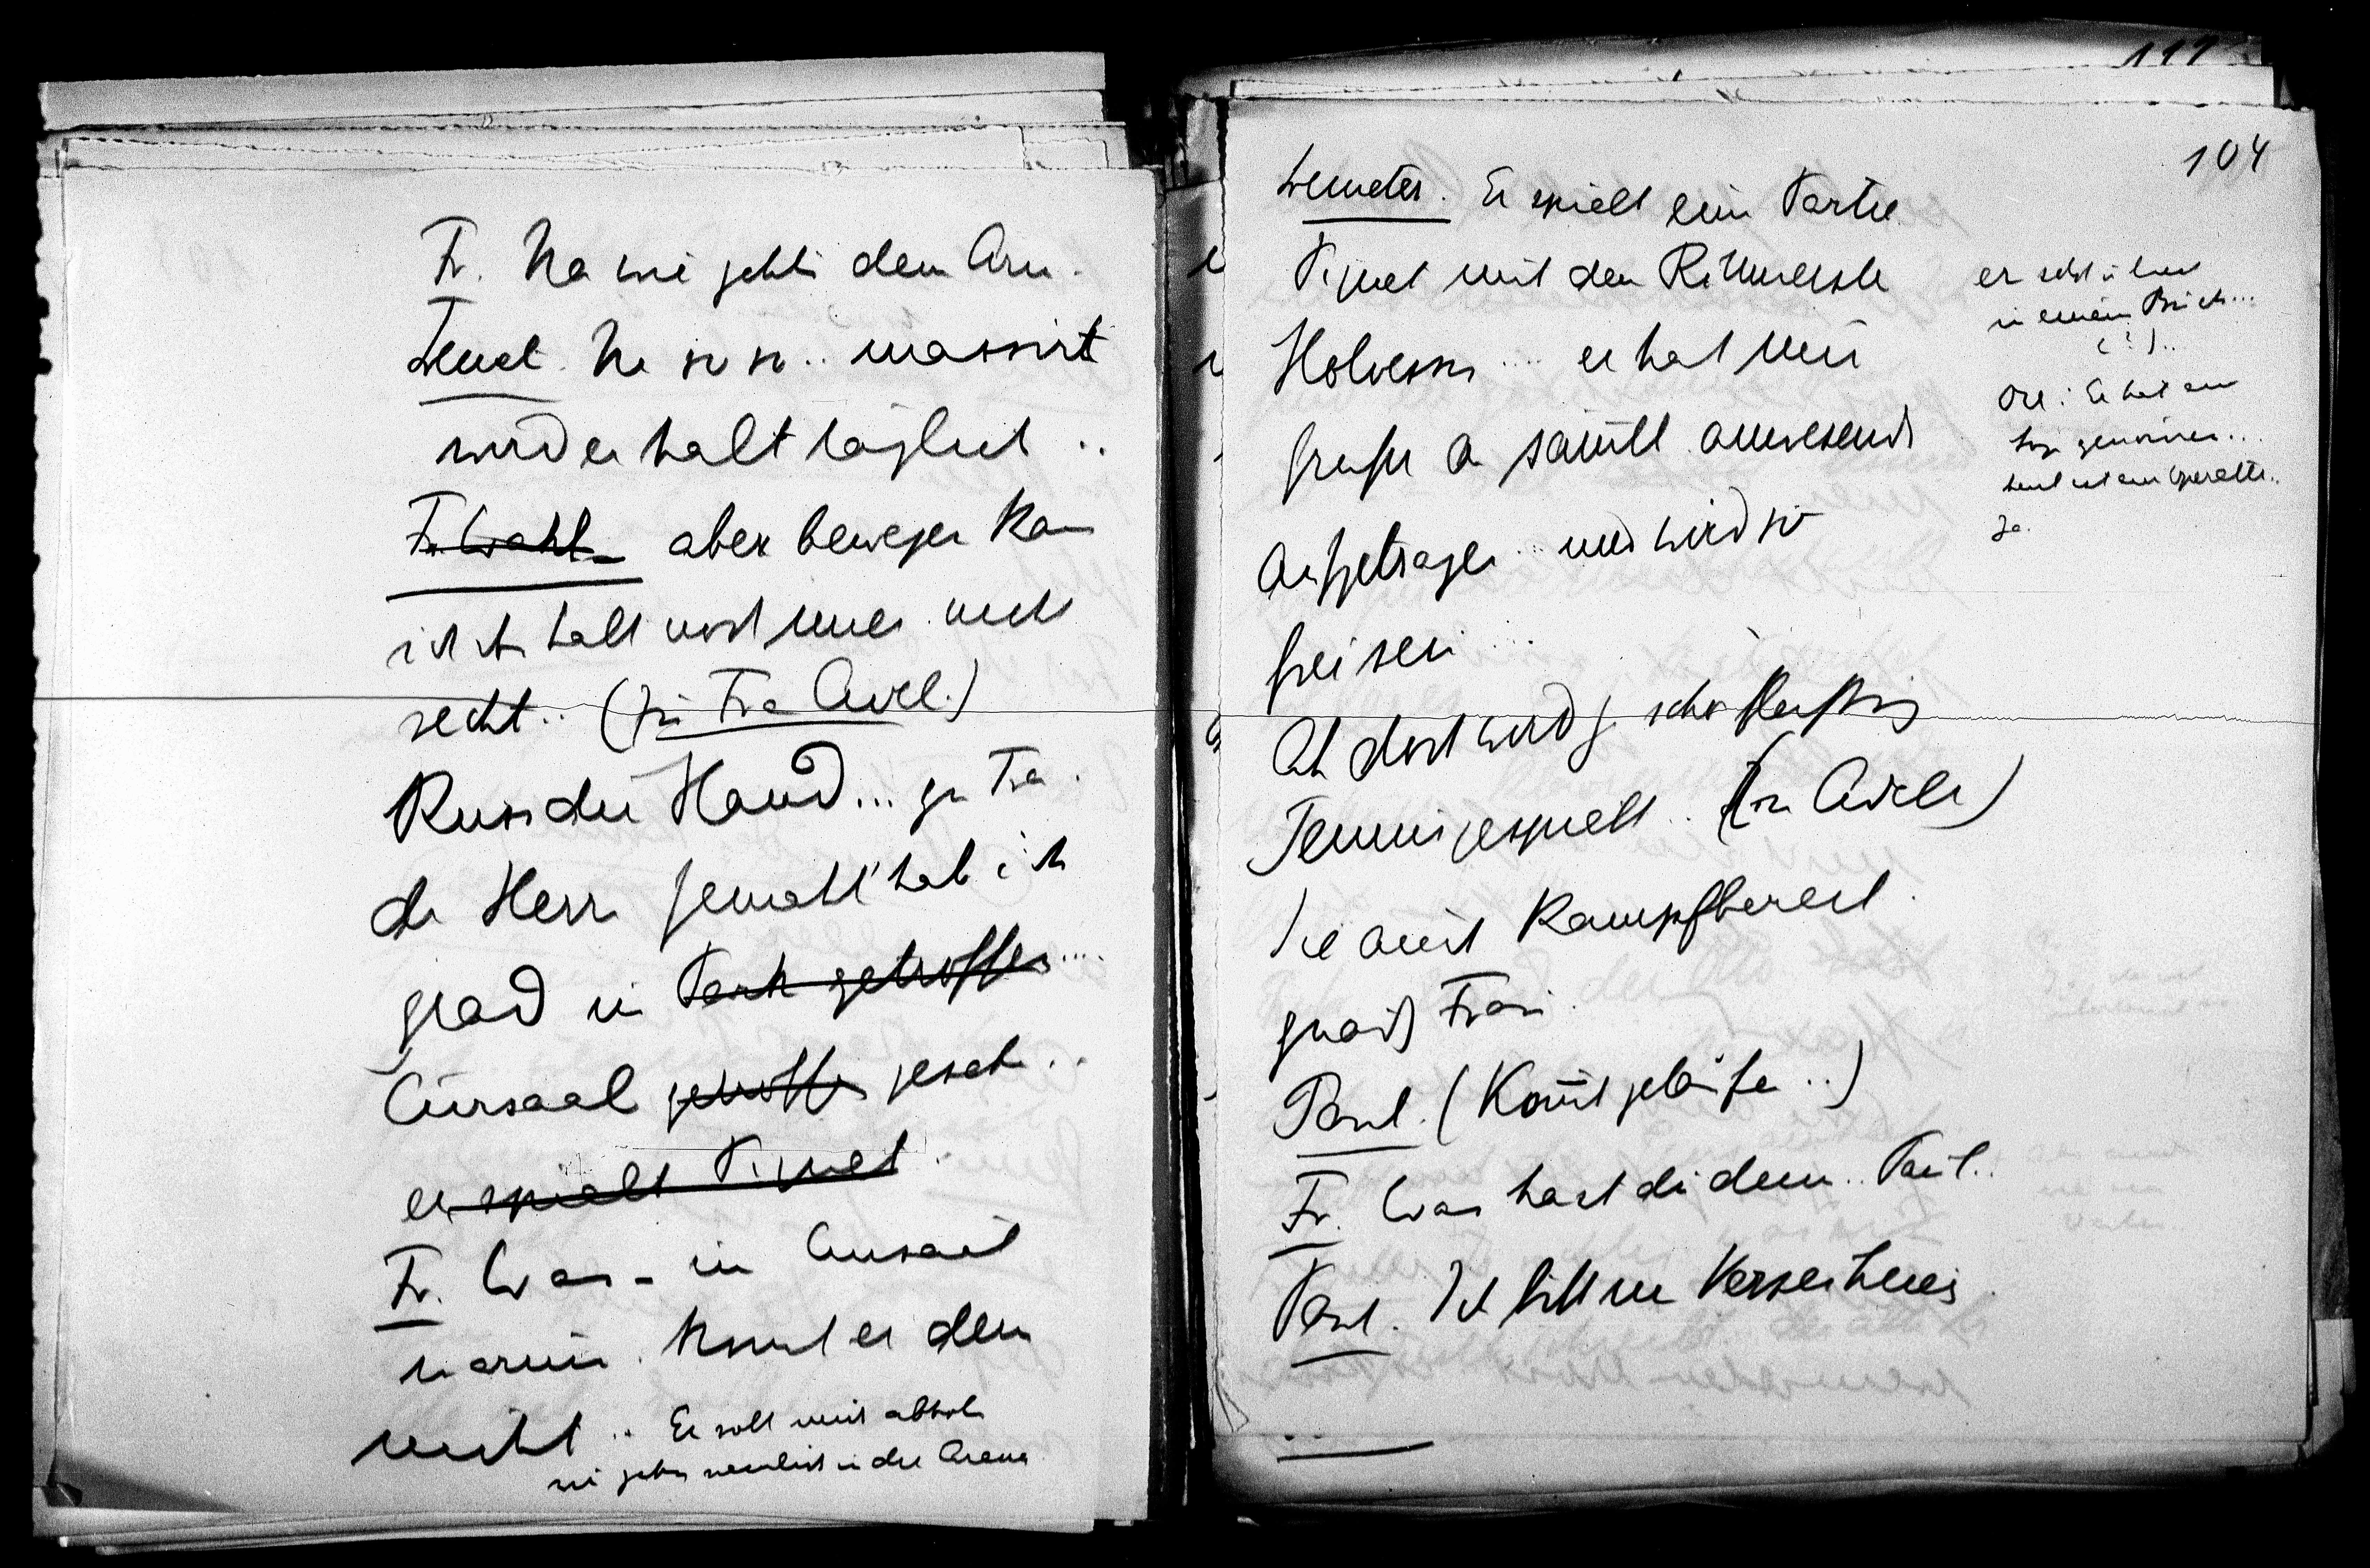 Fr. Na wie gehts dem Arm.
Demet. Na so so.. massirt
wird er halt täglich ..
Fr Wahl aber bewegen kan
ich ihn halt noch immer nicht
recht.. (zu Frau Adel.)
Küss die Hand... gn Fra.
den Herrn Gemahl hab ich
grad im Park getroffen....
Cursaal getroffen gesehn..
er spielt Piquet.
Fr. Was - im Cursaal
warum kommt er denn
nicht .. Er soll mich abholn
wir gehn nemlich in die Arena
104
Demeter. Er spielt eine Partie
Piquet mit dem Rittmeister
er hat mir
Grüße an sämtl. Anwesende
aufgetragen ... und wird so
frei sein ...
Ah dort wird ja schon fleißig
Tennis gespielt .. (zu Adele)
Sie auch kampfbereit.
gnäd Frau.
Paul. (Kommt gelaufen ..)
Fr. Was hast du denn.. Paul..
Paul. Ich bitt um Verzeihung
er
in einem
(?)..
Er hat eine
Loge genommen...
heut ist eine Operette..
Ja.